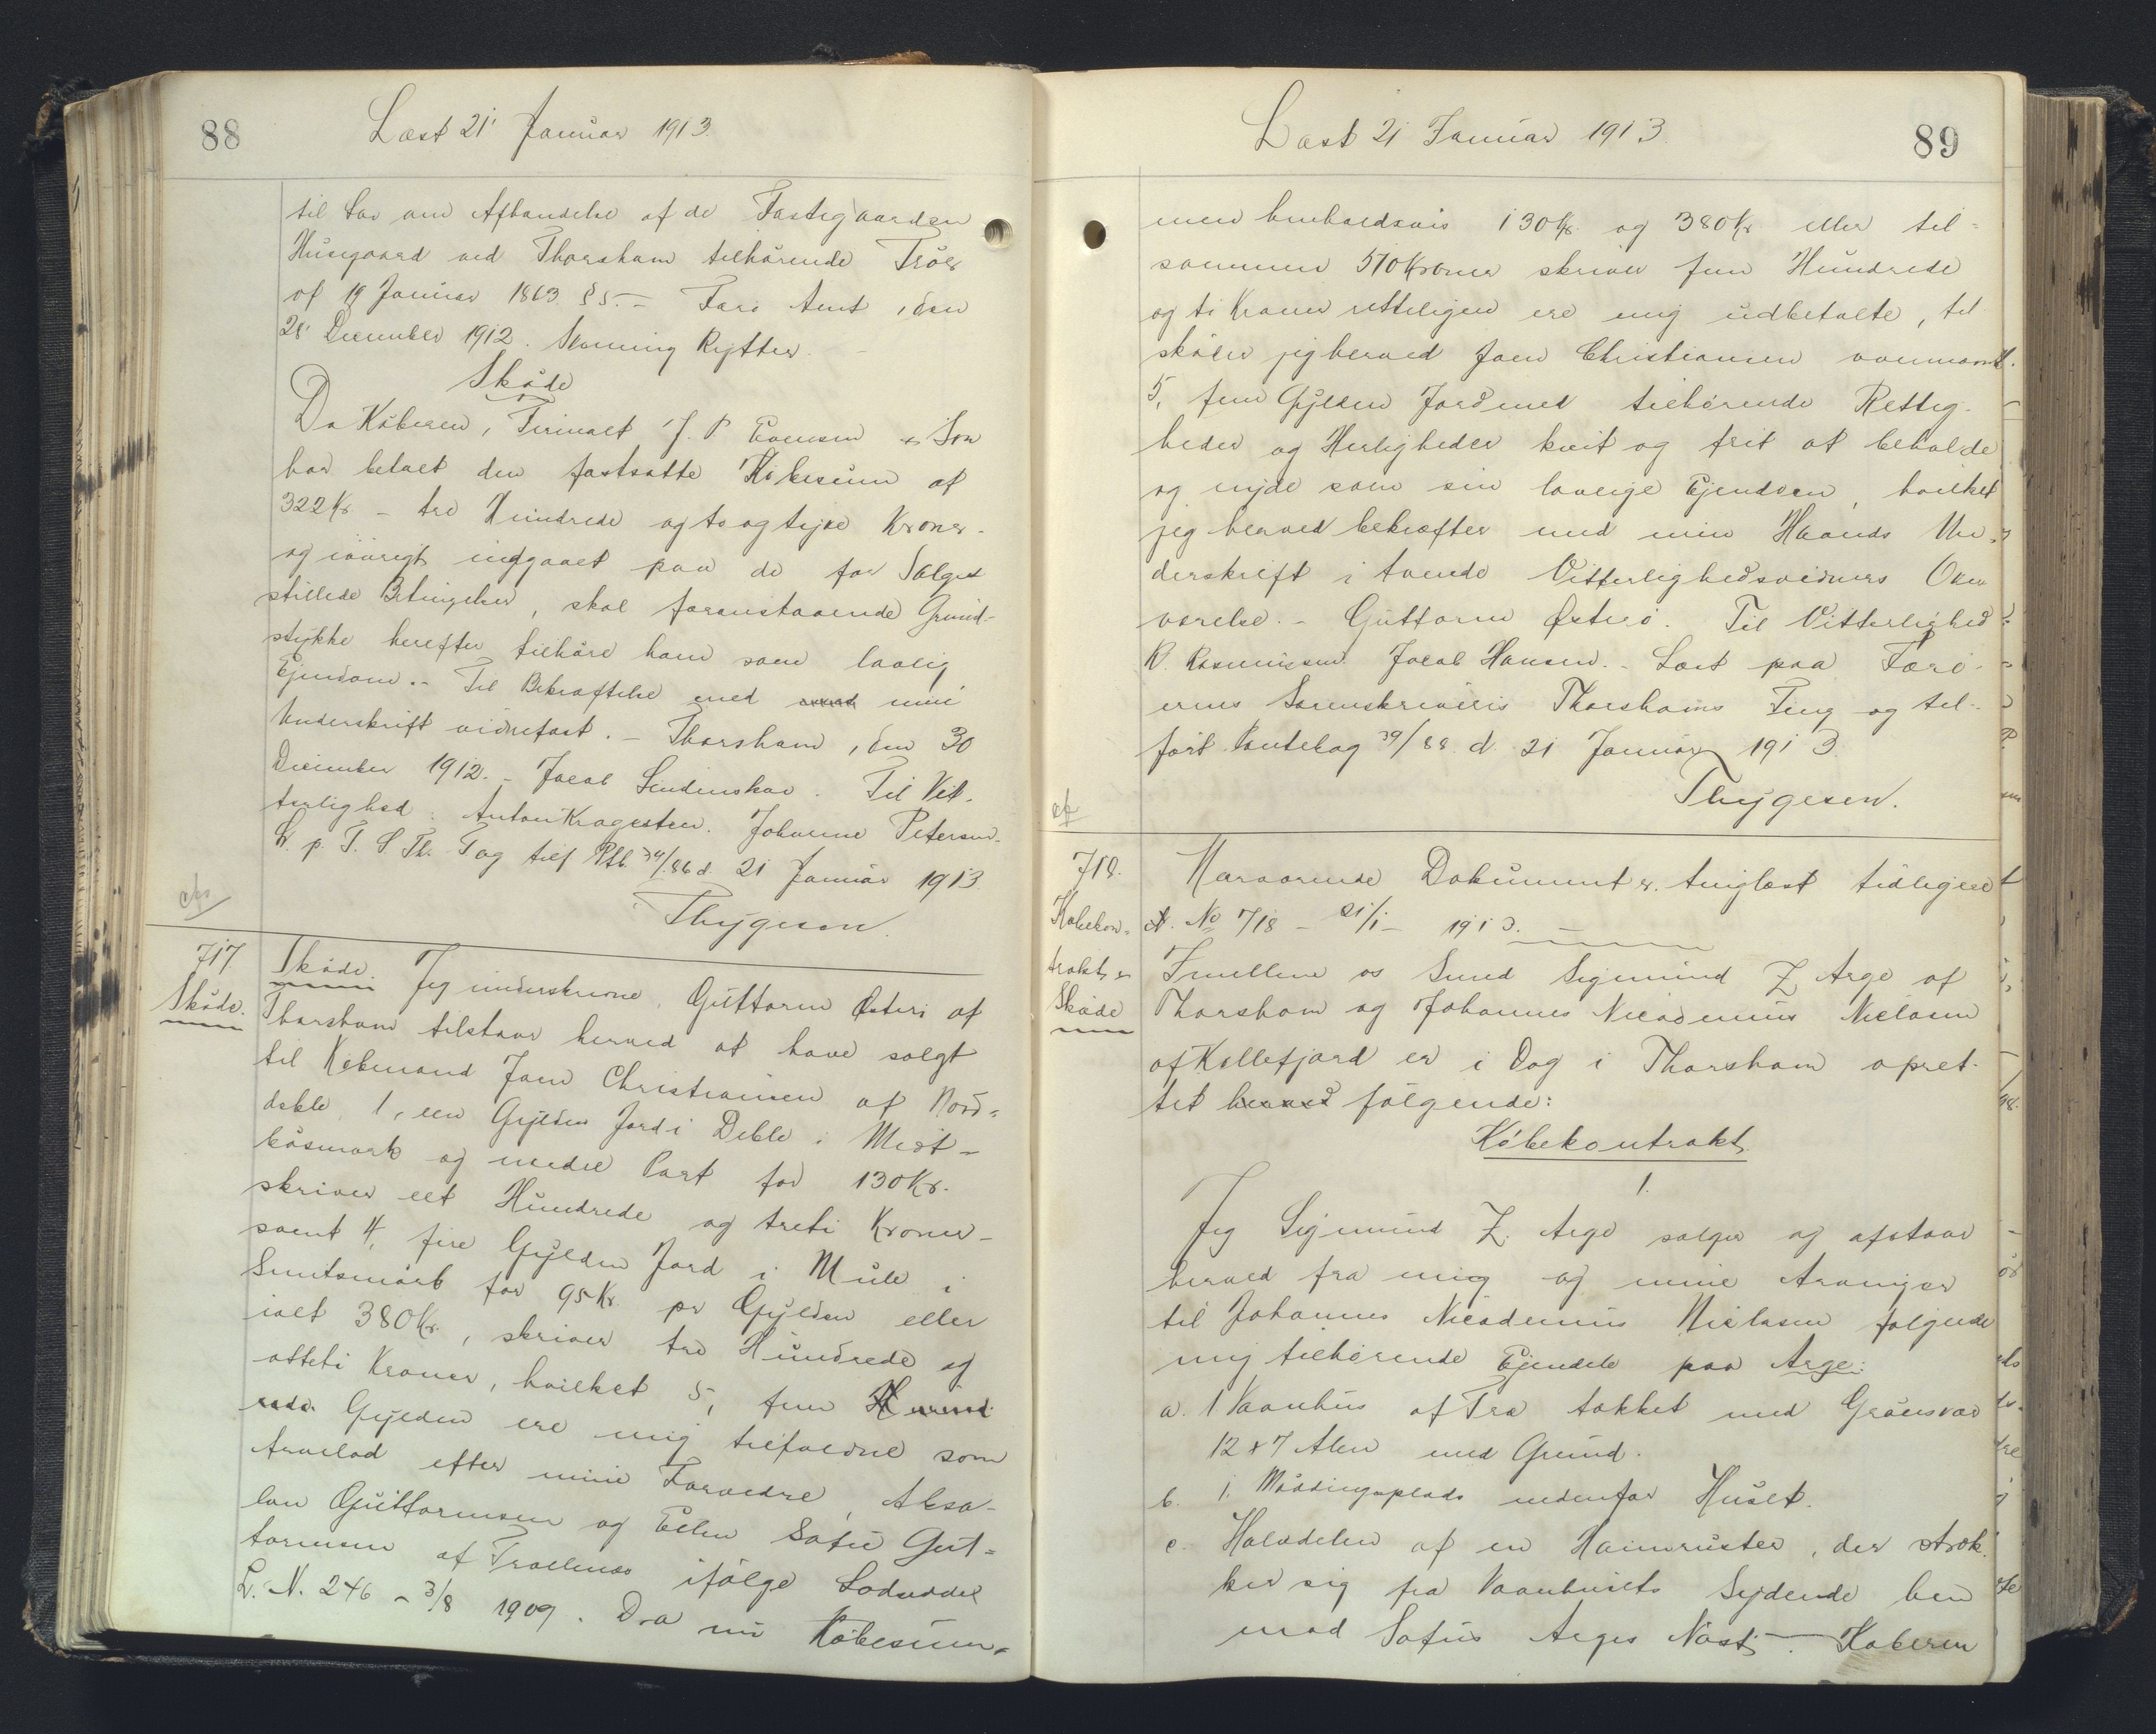 88
Læst 21' Januar 1913.
til Lov om Afhændelse af de Fæstegaarden
Husegaard ved Thorshavn tilhørende Tröer
af 19 Januar 1863. § 5. – Færø Amt, den
28' December 1912. Rytter.
Skøde
Da Køberen, Firmaet J. P. Evensen & Søn
har betalt den fastsatte Købesum af
322 Kr – tre Hundrede og to og tyve Kroner –
og iøvrigt indgaaet paa de for Salget
stillede Betingelser, skal foranstaaende Grund-
stykke herefter tilhøre ham som lovlig
Ejendom. – Til Bekræftelse med min
Underskrift vidnefast. – Thorshavn, den 30
December 1912. – Jacob Lindenskov. Til Vit-
terlighed: Anton Kragesteen. Johanne Petersen.
L. p. F. S. Th. Tog tilf Ptb. 39/86 d. 21 Januar 1913.
Thygesen.
717
Skøde.
Skøde. Jeg underskrevne, Guttorm Østerø af
Thorshavn tilstaar herved at have solgt
til Købmand Joen Christiansen af Nord-
deble 1, een Gylden Jord i Deble i Midt-
bøsmark og nedre Part for 130 Kr.
skriver eet Hundrede og treti Kroner –
samt 4, fire Gylden Jord i Mule i
for 95 Kr. pr Gylden eller
ialt 380 Kr., skriver tre Hundrede og
otteti Kroner, hvilket 5, fem Hund
rede Gylden ere mig tilfaldne som
Arvelod efter mine Forældre, Absa-
lon Guttormsen og Ellen Sofie Gut-
tormsen af Trøllenæs ifølge Lodseddel
L. N. 246 – 3/8 1909. Da nu Købesum-
Læst 21 Januar 1913.
89
men henholdsvis 130 Kr. og 380 Kr eller til-
sammen 510 Kroner skriver fem Hundrede
og ti Kroner retteligen ere mig udbetalte, til
skøder jeg herved Joen Christiansen ovennævnt.
5, fem Gylden Jord med tilhørende Rettig-
heder og Herligheder kvit og frit at beholde
og nyde som sin lovlige Ejendom, hvilket
jeg herved bekræfter med min Haands Un-
derskrift i tvende Vitterlighedsvidners Over
værelse. – Guttorm Østerø. Til Vitterlighed
R. Rasmussen. Jacob Hansen. – Læst paa Færø-
ernes Sorenskriveris Thorshavns Ting og til-
ført Pantebog 39/88. d. 21 Januar 1913.
Thygesen.
718.
Købekon-
trakt &
Skøde
Nærværende Dokument er tinglæst tidligere
cf. No 718 – 21/1 – 1913. –
Imellem os Sund Sigmund Z Arge af
Thorshavn og Johannes Nicodemus Nielsen
af Kollefjord er i Dag i Thorshavn opret-
tet herved følgende:
Købekontrakt
1.
Jeg Sigmund Z. Arge sælger og afstaar
herved fra mig og mine Arvinger
til Johannes Nicodemus Nielsen følgende
mig tilhørende Ejendele paa Arge:
a. 1 Vaanhus af Træ takket med Grønsvær
12 x 7 Alen med Grund.
b. 1. Møddingsplads nedenfor Huset.
c. Halvdelen af en Havn, der stræk-
ker sig fra Vaanhusets Sydende hen
mod Sofus Arges Nøst. – Køberen